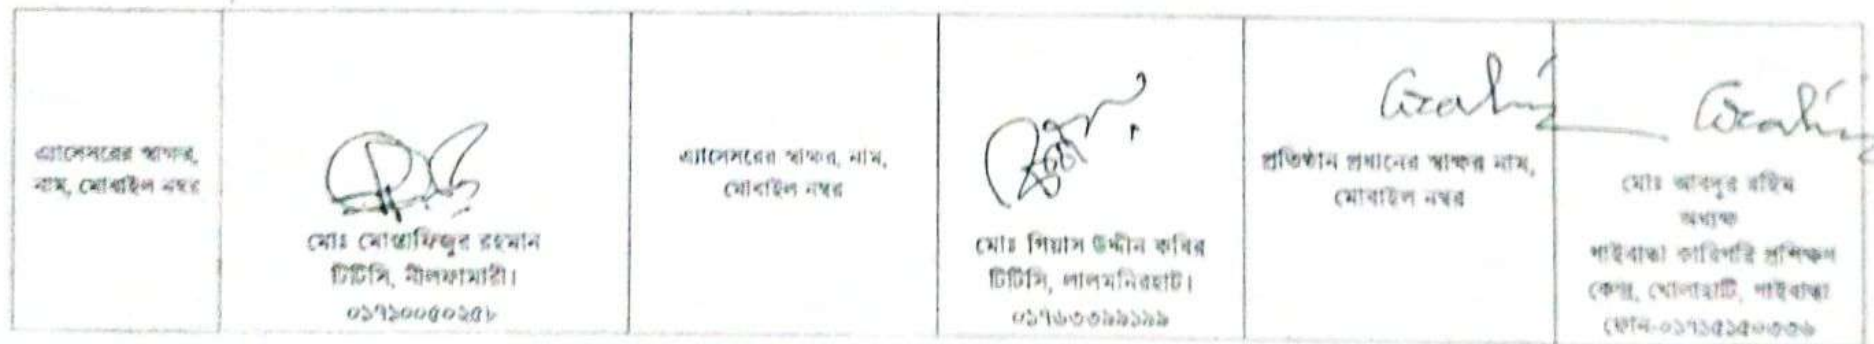 এ্যাসেসরের স্বাক্ষর,
নাম, মোবাইল নম্বর
মোঃ মোস্তাফিজুর রহমান
টিটিসি, নীলফামারী।
এ্যাসেসরের স্বাক্ষর, নাম,
মোবাইল নম্বর
মোঃ গিয়াস উদ্দীন কবির
টিটিসি, লালমনিরহাট।
প্রতিষ্ঠান প্রধানের স্বাক্ষর নাম,
মোবাইল নম্বর
মোঃ আবদুর রহিম
অধ্যক্ষ
গাইবান্ধা কারিগরি প্রশিক্ষণ
কেন্দ্র, খোলাহাটি, গাইবান্ধা